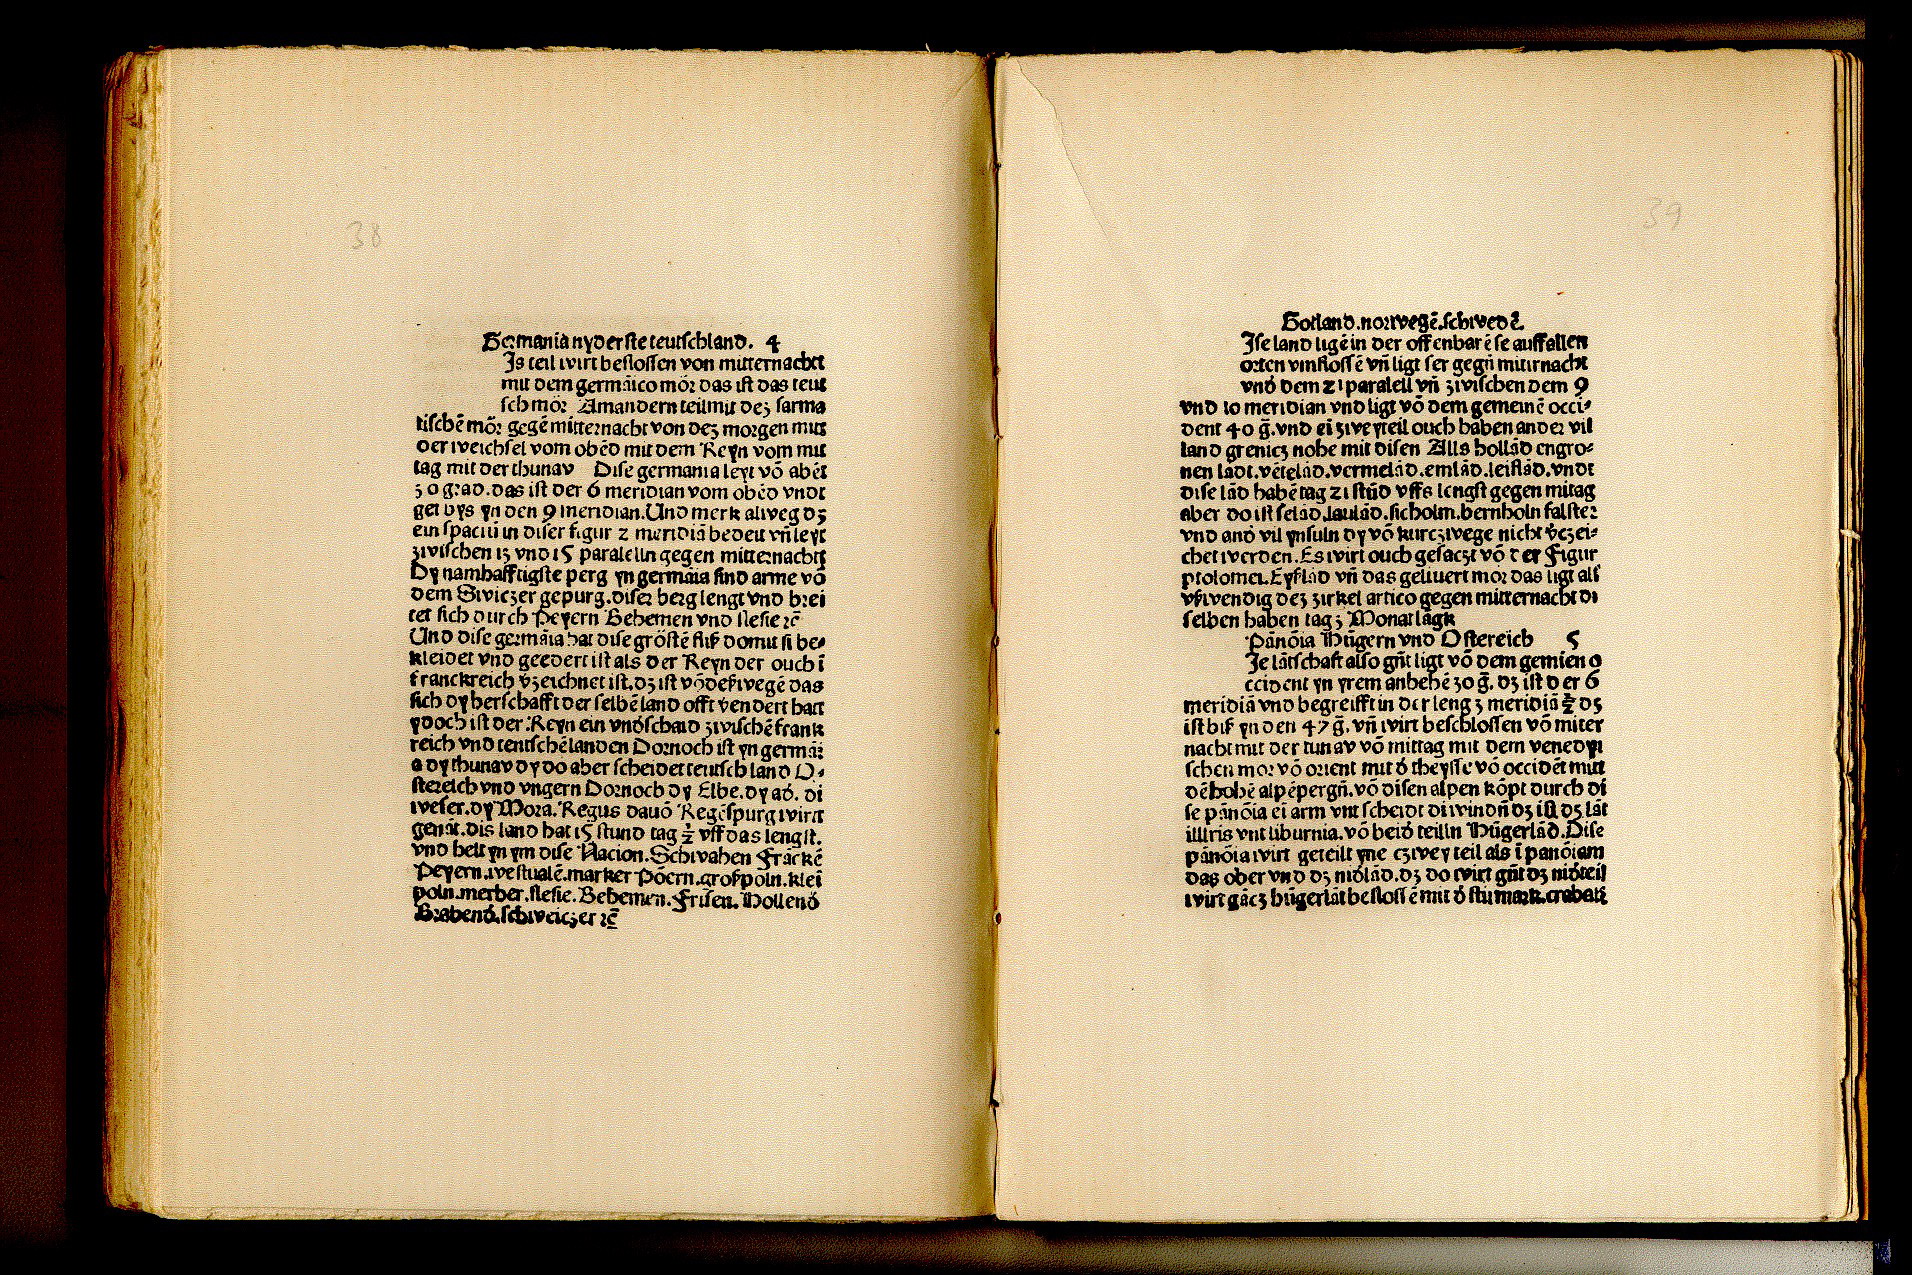 38
Germania nyderste teutschland. 4
Js teil wirt beslossen von mitternachtt
mit dem germāico mör das ist das teut
sch mör Am andern teil mit dez sarma
tischē mör gegē mitternacht von dez morgen mitt
der weichsel vom obēd mit dem Reyn vom mit
tag mit der thunav Dise germania leyt vō abēt
30 grad. das ist der 6 meridian vom obēd vndt
get bys yn den 9 meridian. Und merk alweg dz
ein spaciū in diser figur 2 meridiā bedeit vn̄ leyt
zwischen 13 vnd 15 paralelln gegen mitternachtt
Dy namhafftigste perg yn germāia sind arme vō
dem Swiczer gepurg. diser berg lengt vnd brei
tet sich durch Peyern Behemen vnd slesie ꝛc̄
Und dise germāia hat dise gröstē fliß domit si be⸗
kleidet vnd geedert ist als der Reyn der ouch ī
franckreich v̄zeichnet ist. dz ist vō deßwegē das
sich dy herschafft der selbē land offt v̄endert hatt
ydoch ist der Reyn ein vnd̄schaid zwischē frank
reich vnd teutschē landen Dornoch ist yn germāi
a dy thunav dy do aber scheidet teutsch land O⸗
stereich vnd vngern Dornoch dy Elbe. dy ad̄. di
weser. dy Mora. Regus davō Regēspurg wirtt
genāt. dis land hat 15 stund tag ½ vff das lengst.
vnd helt yn ym dise Nacion. Schwaben Frāckē
Peyern. westualē. marker Pōern. großpoln. klei
poln. merher. slesie. Behemen. Frisen. Hollend̄
Brabend̄. schweiczer ꝛc̄
39
Gotland. norwegē. schwed ꝛ̄.
Jse land ligē in der offenbarē se auff allen
orten vmflossē vn̄ ligt ser gegn̄ mitirnacht
vnd̄ dem 21 paralell vn̄ zwischen dem 9
vnd 10 meridian vnd ligt vō dem gemeinē occi⸗
dent 40 ḡ. vnd ei zweyteil ouch haben ander vil
land grenicz nohe mit disen Alls hollād engro⸗
nen lādt. vētelād. vermelād. emlād. leiflād. vndt
dise lād habē tag 21 stūd vffs lengst gegen mitag
aber do ist selād. laulād. sicholm. bernholn falster
vnd and̄ vil ynsuln dy vō kurczwege nicht v̄czei⸗
chet werden. Es wirt ouch gesaczt vō der Figur
ptolomei. Eyßlād vn̄ das geliuert mor das ligt alß
vßwendig dez zirkel artico gegen mitternacht di
selben haben tag 3 Monat lāgk
Pānōia Hūgern vnd Ostereich 5
Je lātschaft also gn̄t ligt vō dem gemien o
ccident yn yrem anhebē 30 ḡ. dz ist der 6
meridiā vnd begreifft in der leng 3 meridiā ½ dz
ist biß yn den 47 ḡ. vn̄ wirt beschlossen vō miter
nacht mit der tunav vō mittag mit dem venedyi
schen mor vō orient mit d̄ theysse vō occidēt mitt
dē hohē alpēpergn̄. vō disen alpen kōpt durch di
se pānōia ei arm vnt scheidt di windn̄ dz ist dz lāt
illiris vnt liburnia. vō beid̄ teilln Hūgerlād. Dise
pānōia wirt geteilt yne czwey teil als ī panōiam
das ober vnd dz nid̄lād. dz do wirt gn̄t dz nid̄teil
wirt gācz hūgerlāt beslossē mit d̄ stirmark. crabatē